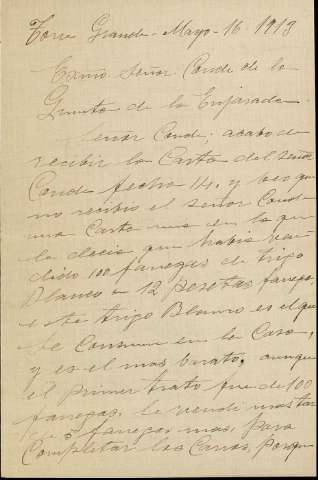 Torre Grande - Mayo - 16 - 1913
Exmo Señor Conde de la
Quinta de la Enjarada.
Señor Conde; acabo de
recibir la Carta del señor
Conde fecha 14, y veo que
no recibio el señor Conde
una Carta mia en la que
le decia que habia ven
dido 100 fanegas de trigo
Blanco a 12 pesetas fanega.
este trigo Blanco es el que
se Consume en la Casa,
y es el mas barato, aunque
el primer trato fue de 100
fanegas, le vendi mas tar
de 5 fanegas mas, para
Completar los Carros, porque